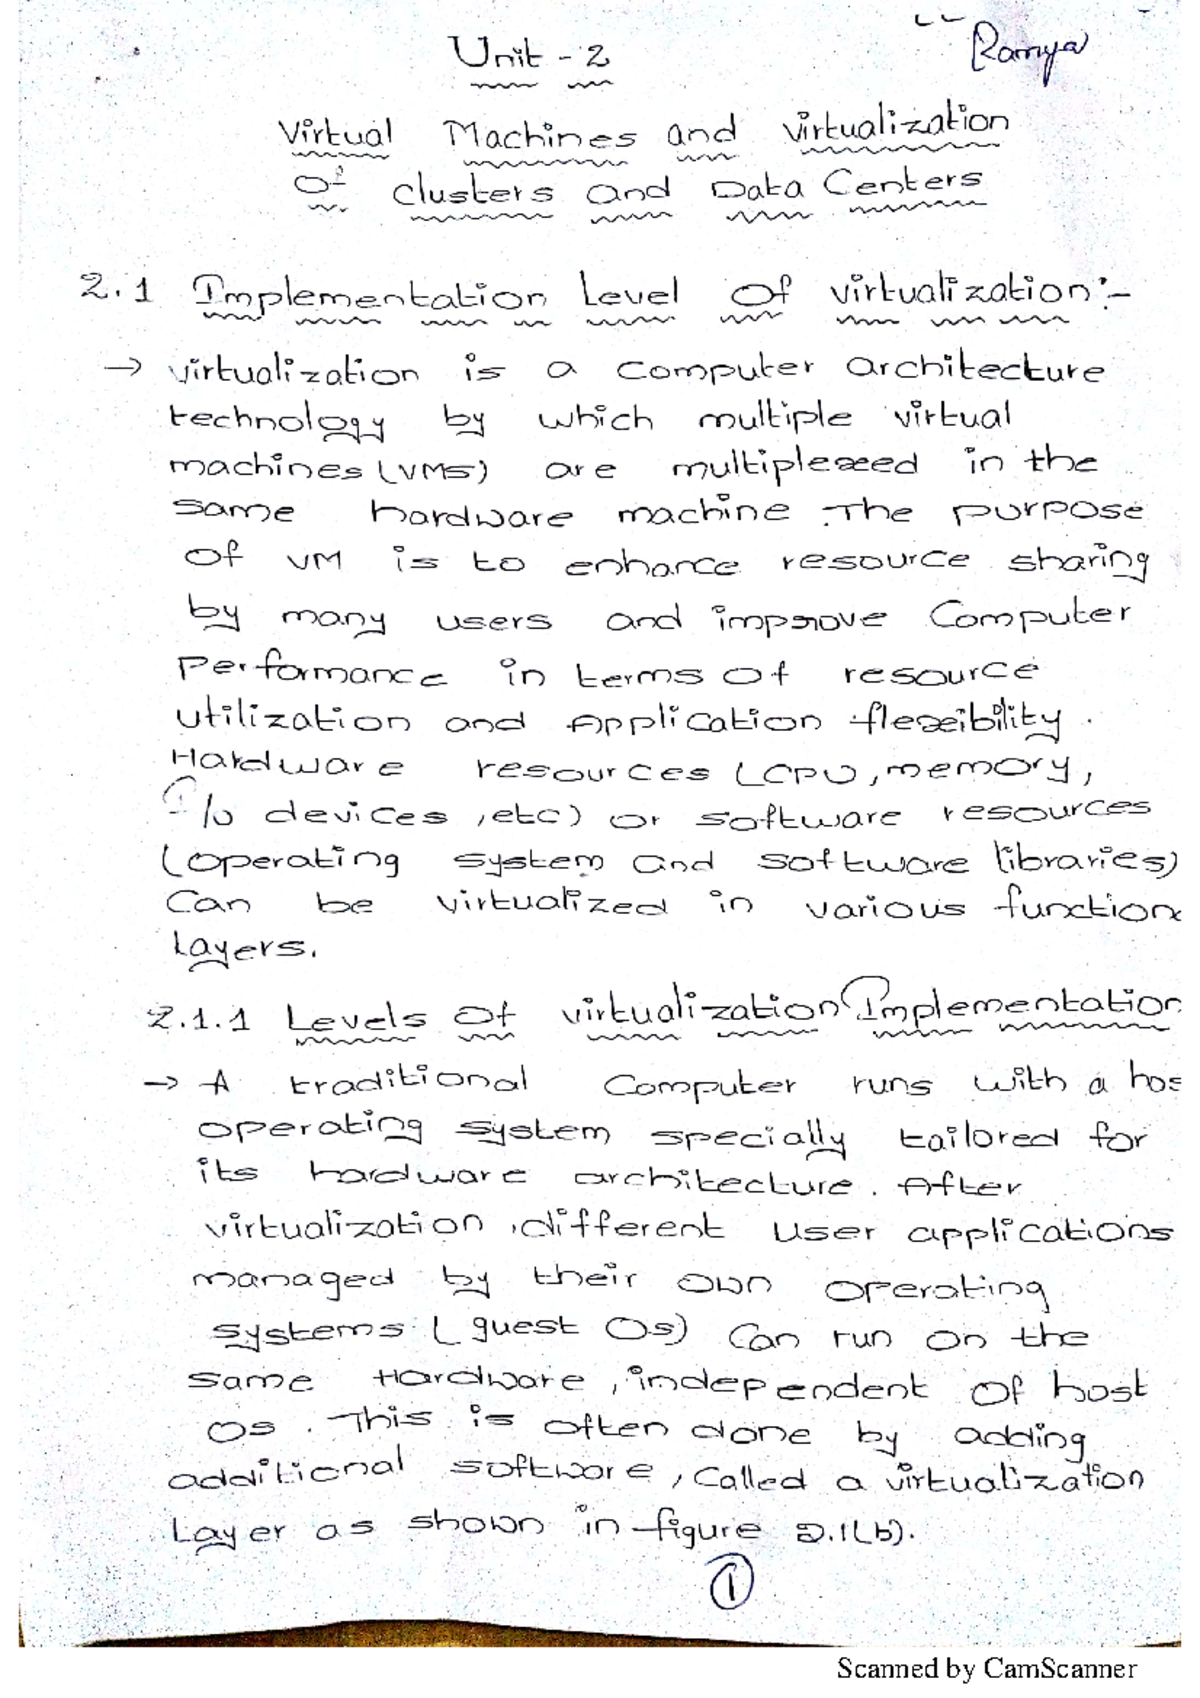 Ramya
Unit - 2
Virtual Machines and virtualization
Of Clusters and Data Centers
2.1 Implementation Level Of virtualization:-
→ virtualization is a computer architecture
technology by which multiple virtual
machines (VMs) are multiplexed in the
same hardware machine. The purpose
Of VM is to enhance resource sharing
by many users and improve Computer
Performance in terms of resource
utilization and Application flexibility.
Hardware resources (CPU, memory,
I/o devices, etc) or software resources
(operating system and software libraries)
Can be virtualized in various function
Layers.
2.1.1 Levels Of virtualization Implementation
→ A traditional Computer runs with a hos
operating system specially tailored for
its hardware architecture. After
virtualization, different user applications
managed by their own operating
systems (guest Os) Can run on the
same Hardware, independent Of host
Os. This is often done by adding
additional software, Called a virtualization
Layer as shown in figure 2.1(b).
1
Scanned by CamScanner